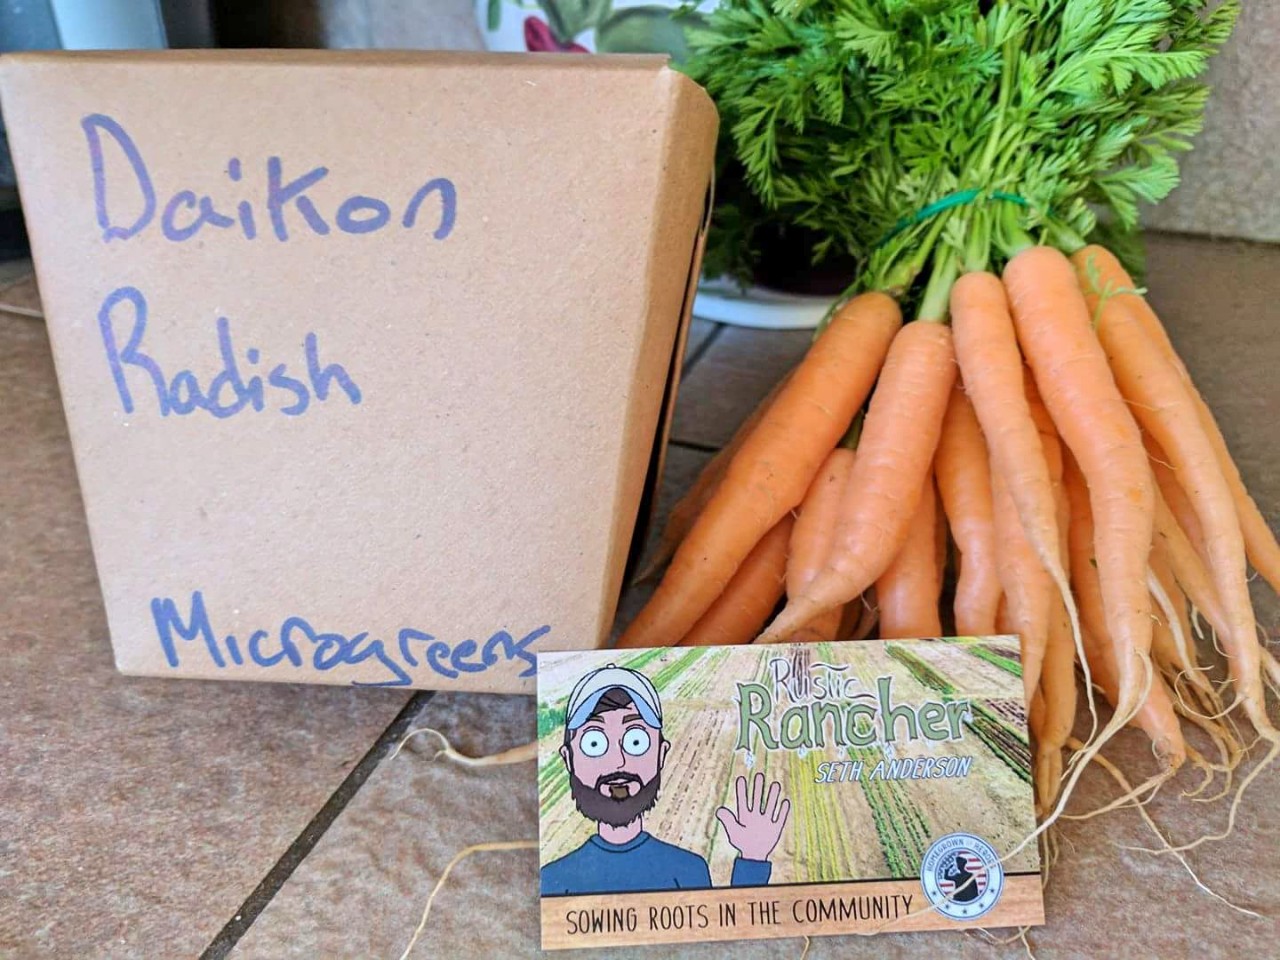 Daikon
Radish
Microgreens
Rustic
Rancher
SETH ANDERSON
HOMEGROWN BY HEROES
SOWING ROOTS IN THE COMMUNITY